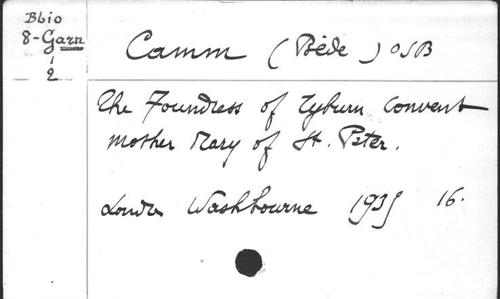 Bbio
8-Garn
2
Camm (Bède) OSB
The Foundress of Tyburn Convent
Mother Mary of St. Peter.
Londres Washbourne 1935 16.